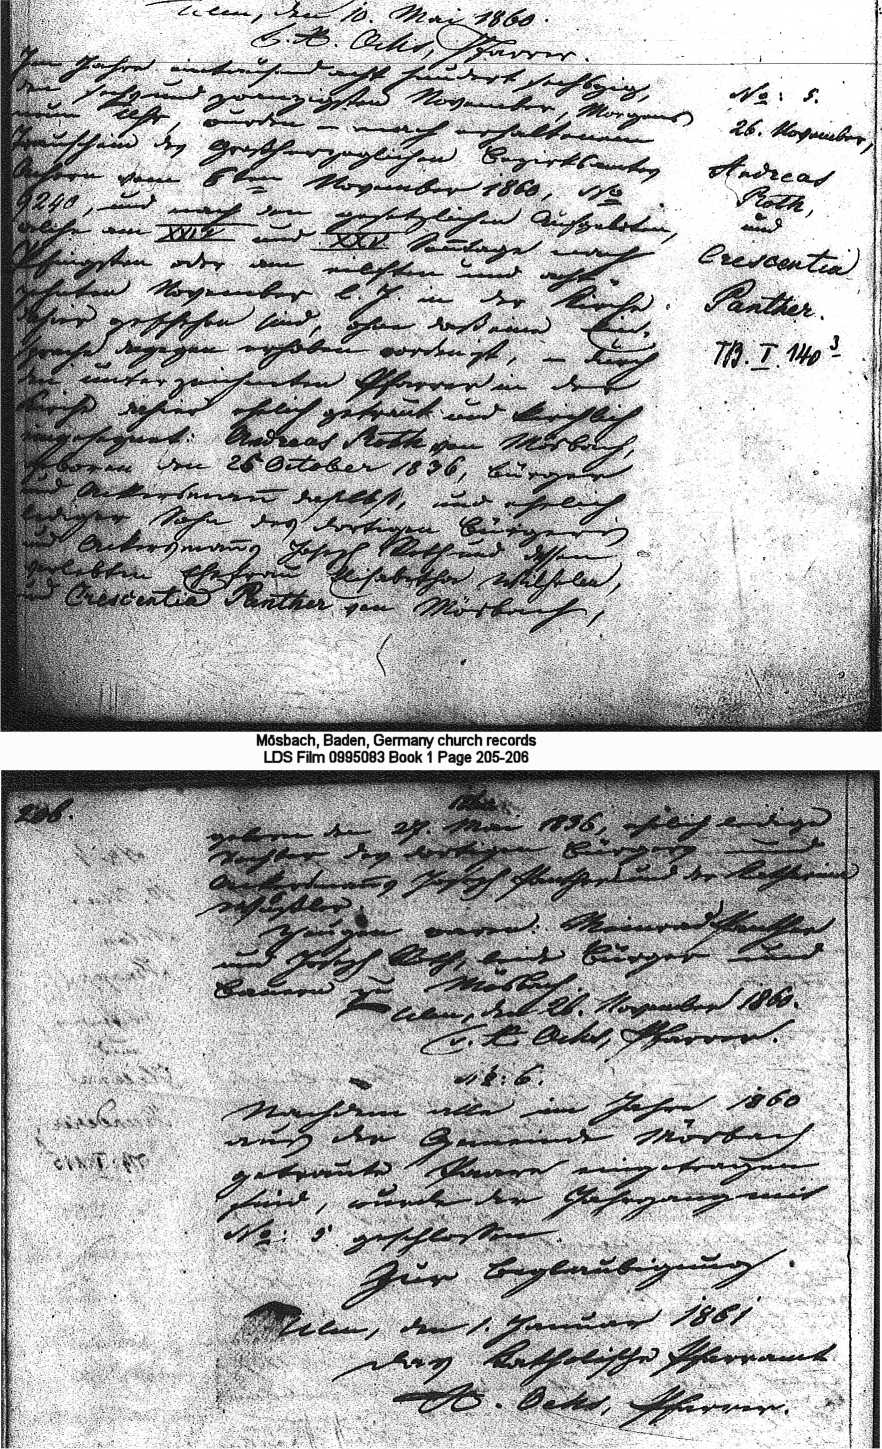 Ulm, den 10. Mai 1860.
C. A. Ochs, Pfarrer.
Im Jahre eintausend acht hundert sechszig,
den sechs und zwanzigsten November, Morgens
neun Uhr, wurden – nach erhaltenem
Trauschein des Großherzoglichen Bezirksamtes
Achern vom 6ten November 1860, No
9240, und nach den gesetzlichen Aufgeboten,
welche am XXIV und XXV Sonntage nach
Pfingsten oder am eilften und acht
zehnten November l. J. in der Kirche
dahier geschehen sind, ohne daß eine Ein-
sprache dagegen erhoben worden ist, – durch
den unterzeichneten Pfarrer in der
Kirche dahier ehelich getraut und kirchlich
eingesegnet: Andreas Roth von Mösbach,
geboren den 26 October 1836, Bürger
und Ackersmann daselbst, und ehelich
lediger Sohn des dortigen Bürgers
und Ackersmanns Joseph Roth und dessen
verlebten Ehefrau Elisabetha
und Crescentia Panther von Mösbach,
No: 5.
26. November,
Andreas
Roth,
und
Crescentia
Panther.
TB. I. 140 3
Mösbach, Baden, Germany church records
LDS Film 0995083 Book 1 Page 205-206
206.
geboren den 27. Mai 1836, ehelich ledige
Tochter des dortigen Bürgers und
Ackersmanns Joseph Panther und der Katharina
Zeugen waren: Meinrad Panther
und Joseph Roth, beide Bürger und
Bauern zu Mösbach.
Ulm, den 26. November 1860.
C. A. Ochs, Pfarrer.
No: 6.
Nachdem alle im Jahre 1860
aus der Gemeinde Mösbach
getraute Paare eingetragen
sind, wurde der Jahrgang mit
No: 5 geschlossen.
Zur Beglaubigung
Ulm, den 1. Januar 1861
Das katholische Pfarramt
A. Ochs, Pfarrer.